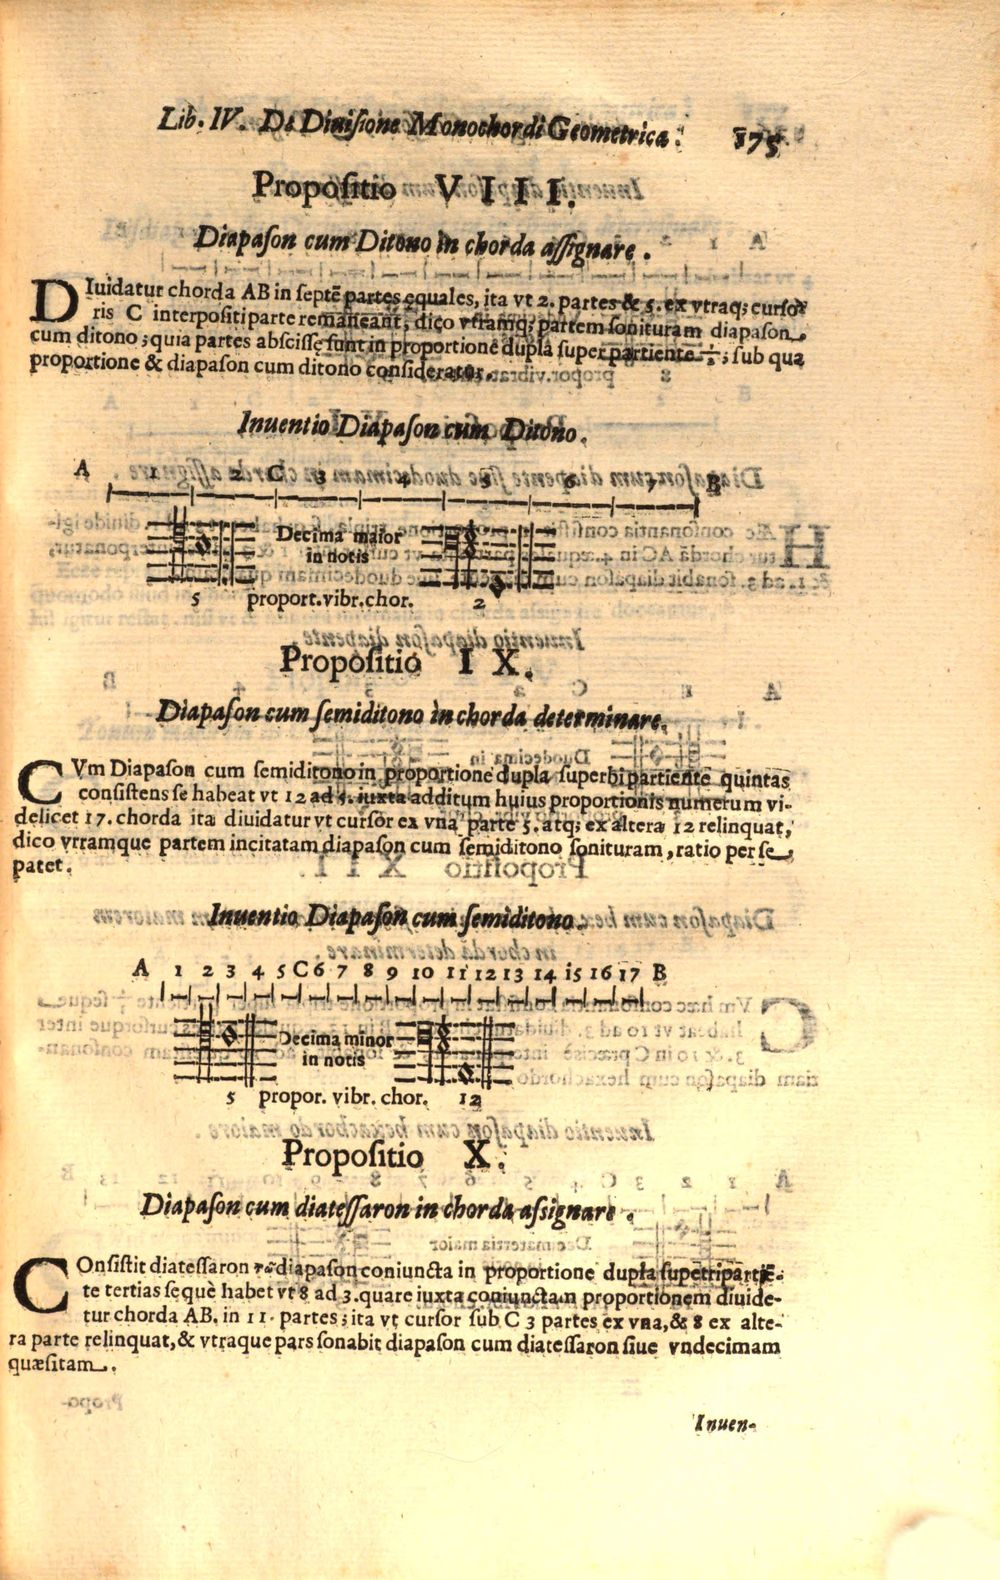 Lib. IV. De Diuisione Monochordi Geometrica. 175
Propositio VIII.
Diapason cum Ditono in chorda assignare.
DIuidatur chorda AB in septē partes ęquales, ita vt 2. partes & 5. ex vtraq; curso-
ris C interpositi parte remaneant; dico vtramq; partem sonituram diapason
cum ditono; quia partes abscissę sunt in proportione dupla super partiente ; sub qua
proportione & diapason cum ditono consideratur.
Inuentio Diapason cum Ditono.
A 1 2 C 3 4 5 6 7 B
Decima maior
in notis
5 proport. vibr. chor. 2
Propositio IX.
Diapason cum semiditono in chorda determinare.
CVm Diapason cum semiditono in proportione dupla superbi partiente quintas
consistens se habeat vt 12 ad 5. iuxta additum huius proportionis numerum vi-
delicet 17. chorda ita diuidatur vt cursor ex vna parte 5. atq; ex altera 12 relinquat,
dico vtramque partem incitatam diapason cum semiditono sonituram, ratio per se
patet.
Inuentio Diapason cum semiditono.
A 1 2 3 4 5 C 6 7 8 9 10 11 12 13 14 15 16 17 B
Decima minor
in notis
5 propor. vibr. chor. 12
Propositio X.
Diapason cum diatessaron in chorda assignare.
COnsistit diatessaron diapason coniuncta in proportione dupla supertripartiē-
te tertias se què habet vt 8 ad 3. quare iuxta coniunctam proportionem diuide-
tur chorda AB. in 11. partes; ita vt cursor sub C 3 partes ex vna, & 8 ex alte-
ra parte relinquat, & vtraque pars sonabit diapason cum diatessaron siue vndecimam
quæsitam.
Inuen-